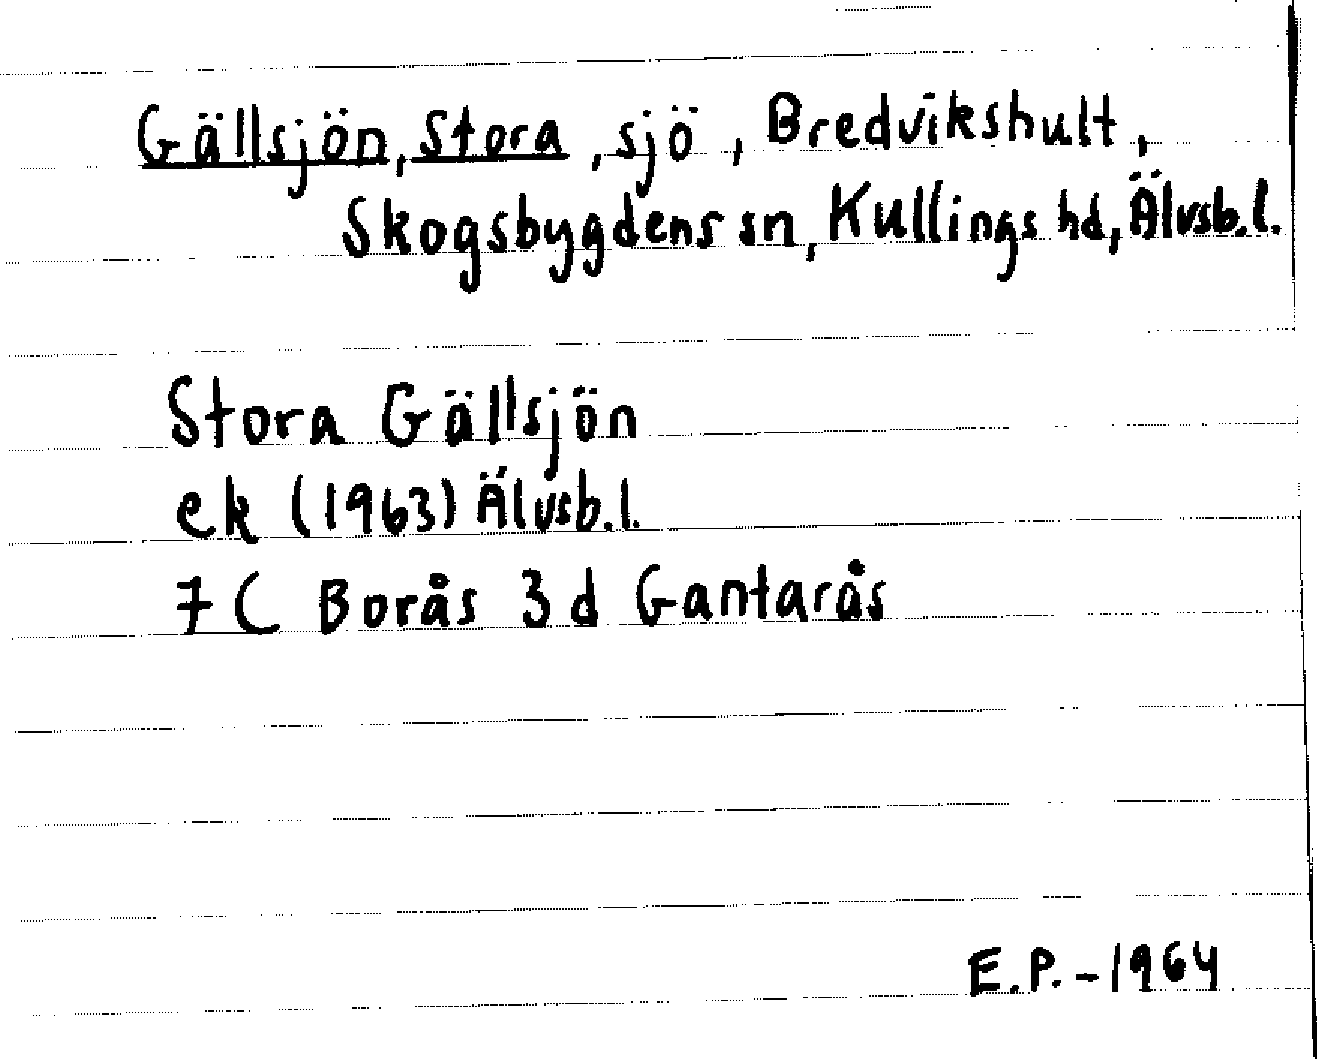 Gällsjön, Stora, sjö, Bredvikshult,
Skogsbygdens sn, Kullings hd, Älvsb.l.
Stora Gällsjön
ek (1963) Älvsb.l.
7C Borås 3d Gantarås
E.P.-1964